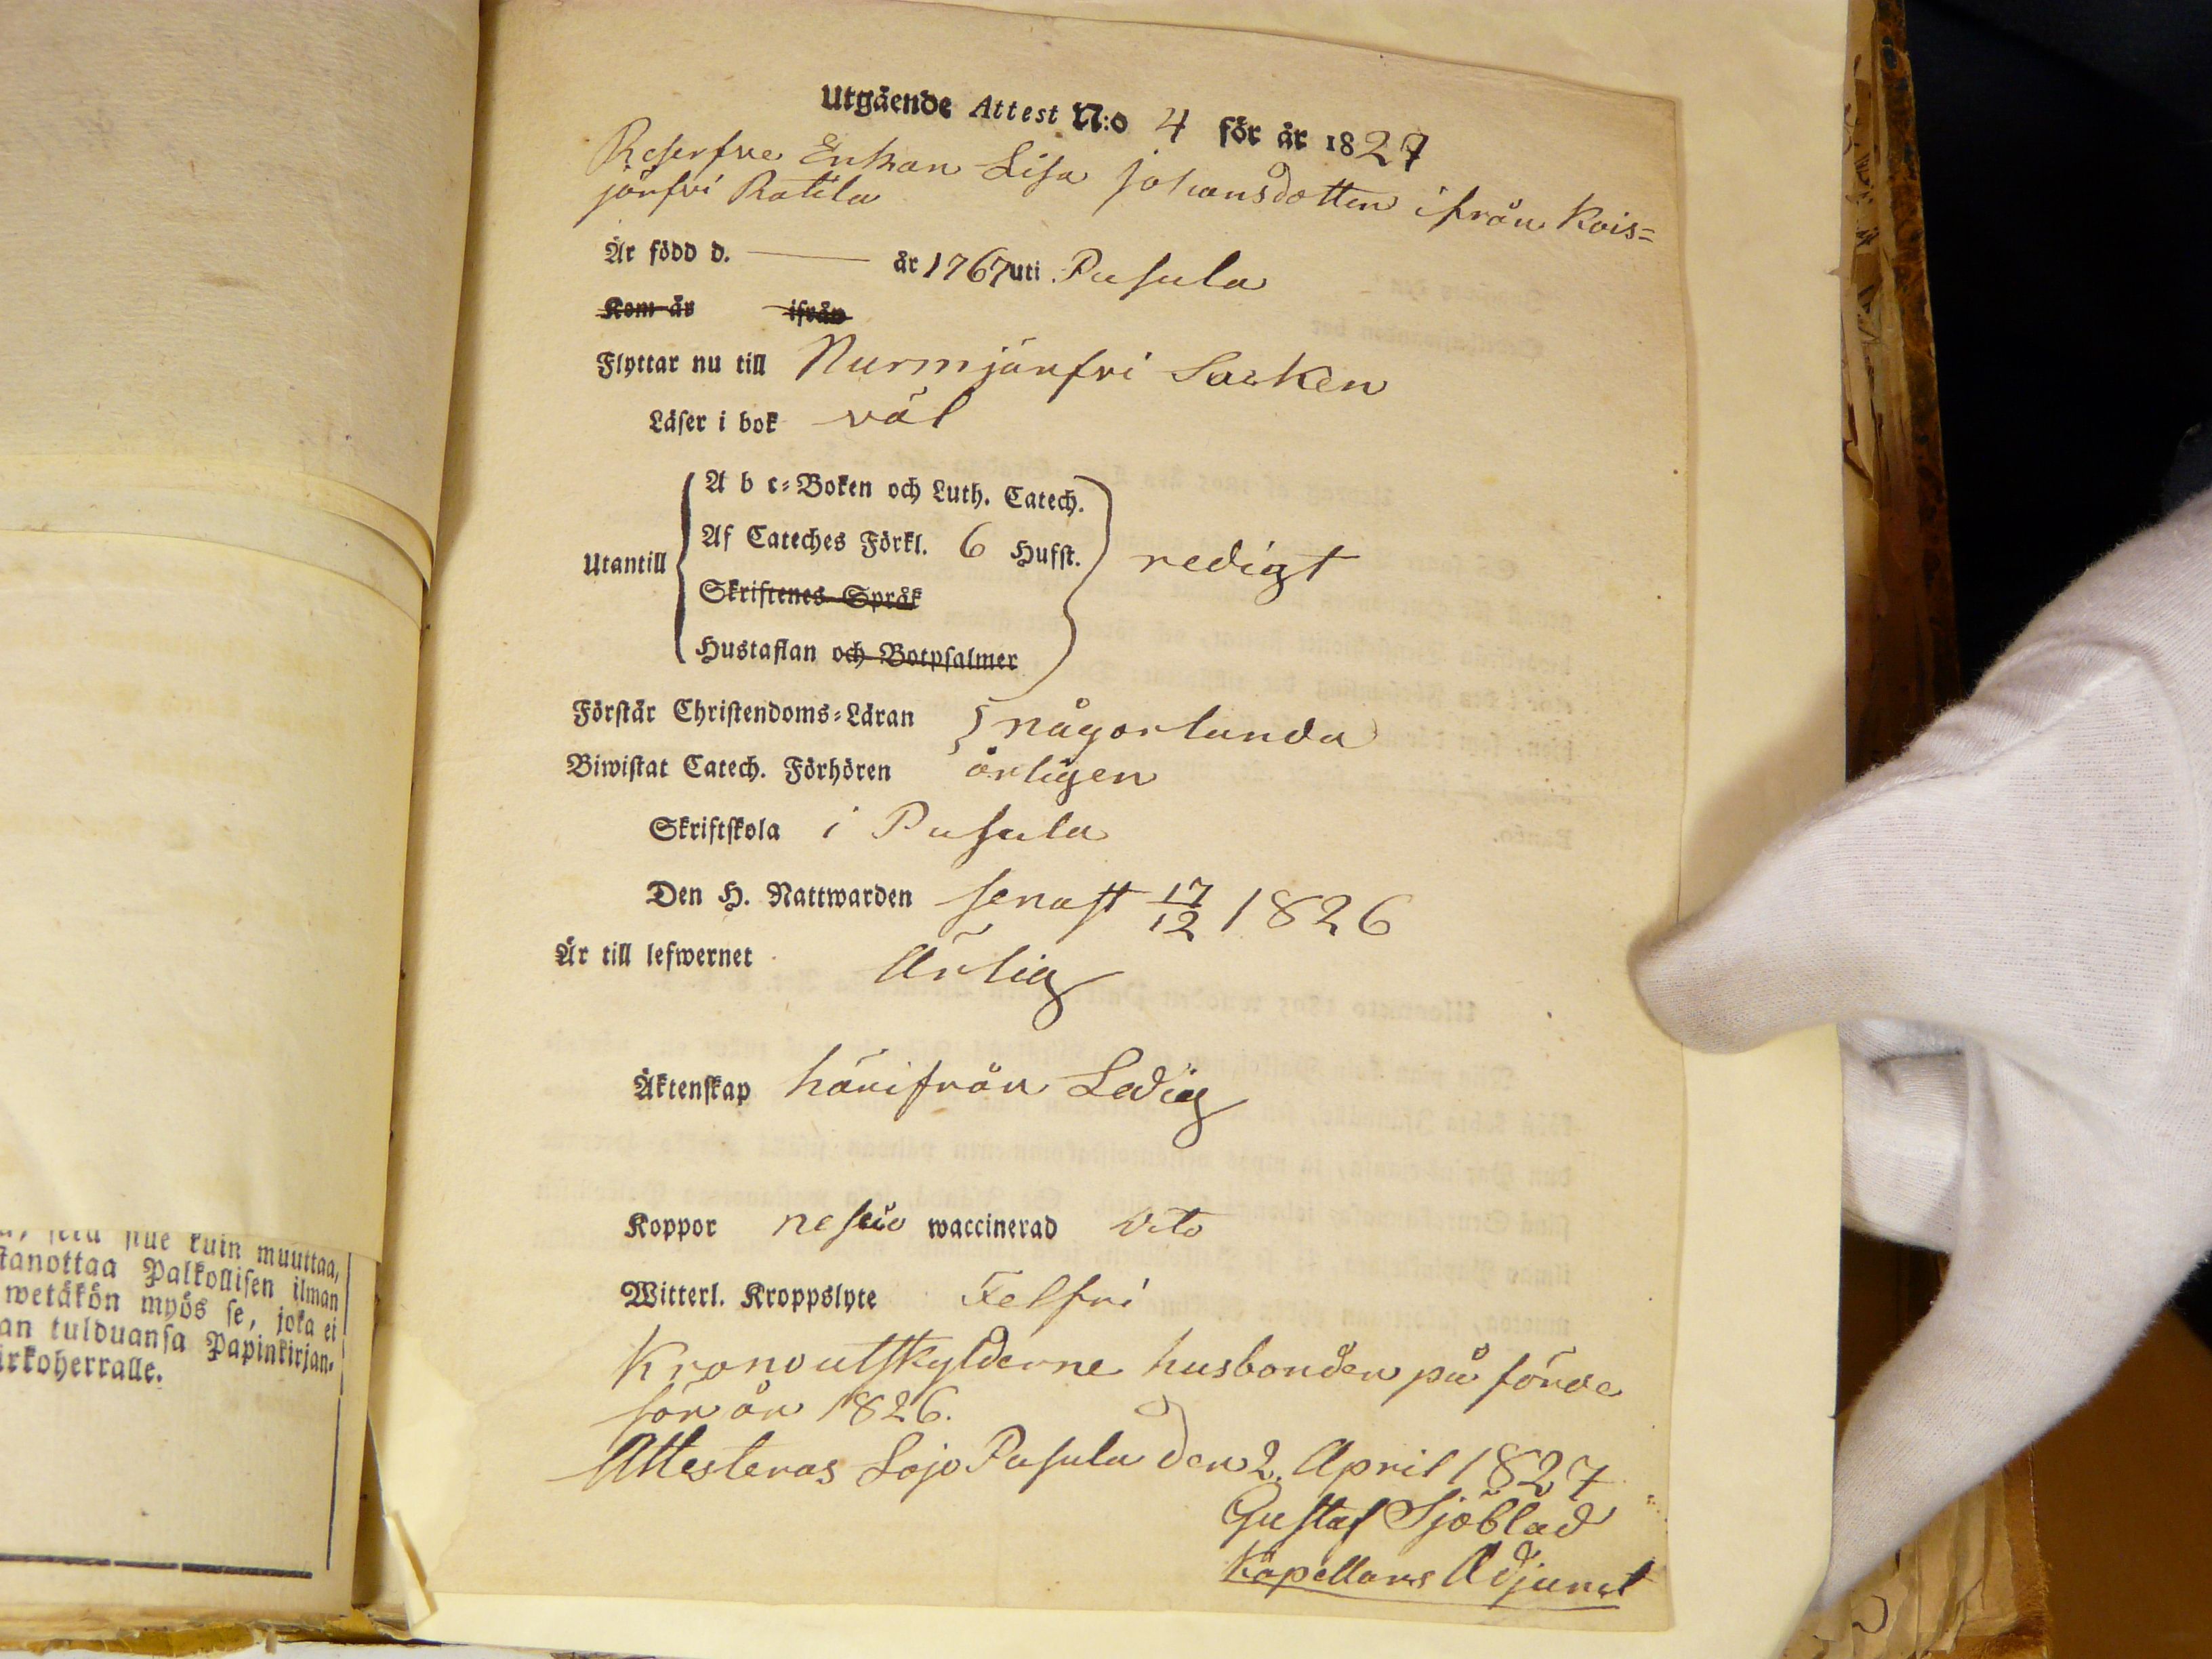 Utgående Attest N:o 4 för år 1827
Reserfve Enkan Lisa Johansdotter ifrån Kois=
järfvi Ratila
Är född d. —— år 1767 uti Pusula
Kom år ifrån
Flyttar nu till Nurmijärfvi Socken
Läser i bok väl
Utantill
A b c=Boken och Luth. Catech.
Af Cateches Förkl. 6 Hufst.
redigt
Skriftenes Språk
Hustaflan och Botpsalmer
Förstår Christendoms=Läran någorlunda
Biwistat Catech. Förhören årligen
Skriftskola i Pusula
Den H. Nattwarden senast 17/12 1826
Är till lefwernet Ärlig
Äktenskap härifrån Ledig
Koppor nescio waccinerad dito
Witterl. Kroppslyte Felfri
Kronoutskylderne husbonden påförde
för år 1826.
Attesteras Lojo Pusula den 2. April 1827
Gustaf Sjöblad
Kapellans Adjunct
sine kuin muuttaa,
stanottaa Palkollisen ilman
wetäkön myös se, joka ei
an tulduansa Papinkirjan=
irkoherralle.